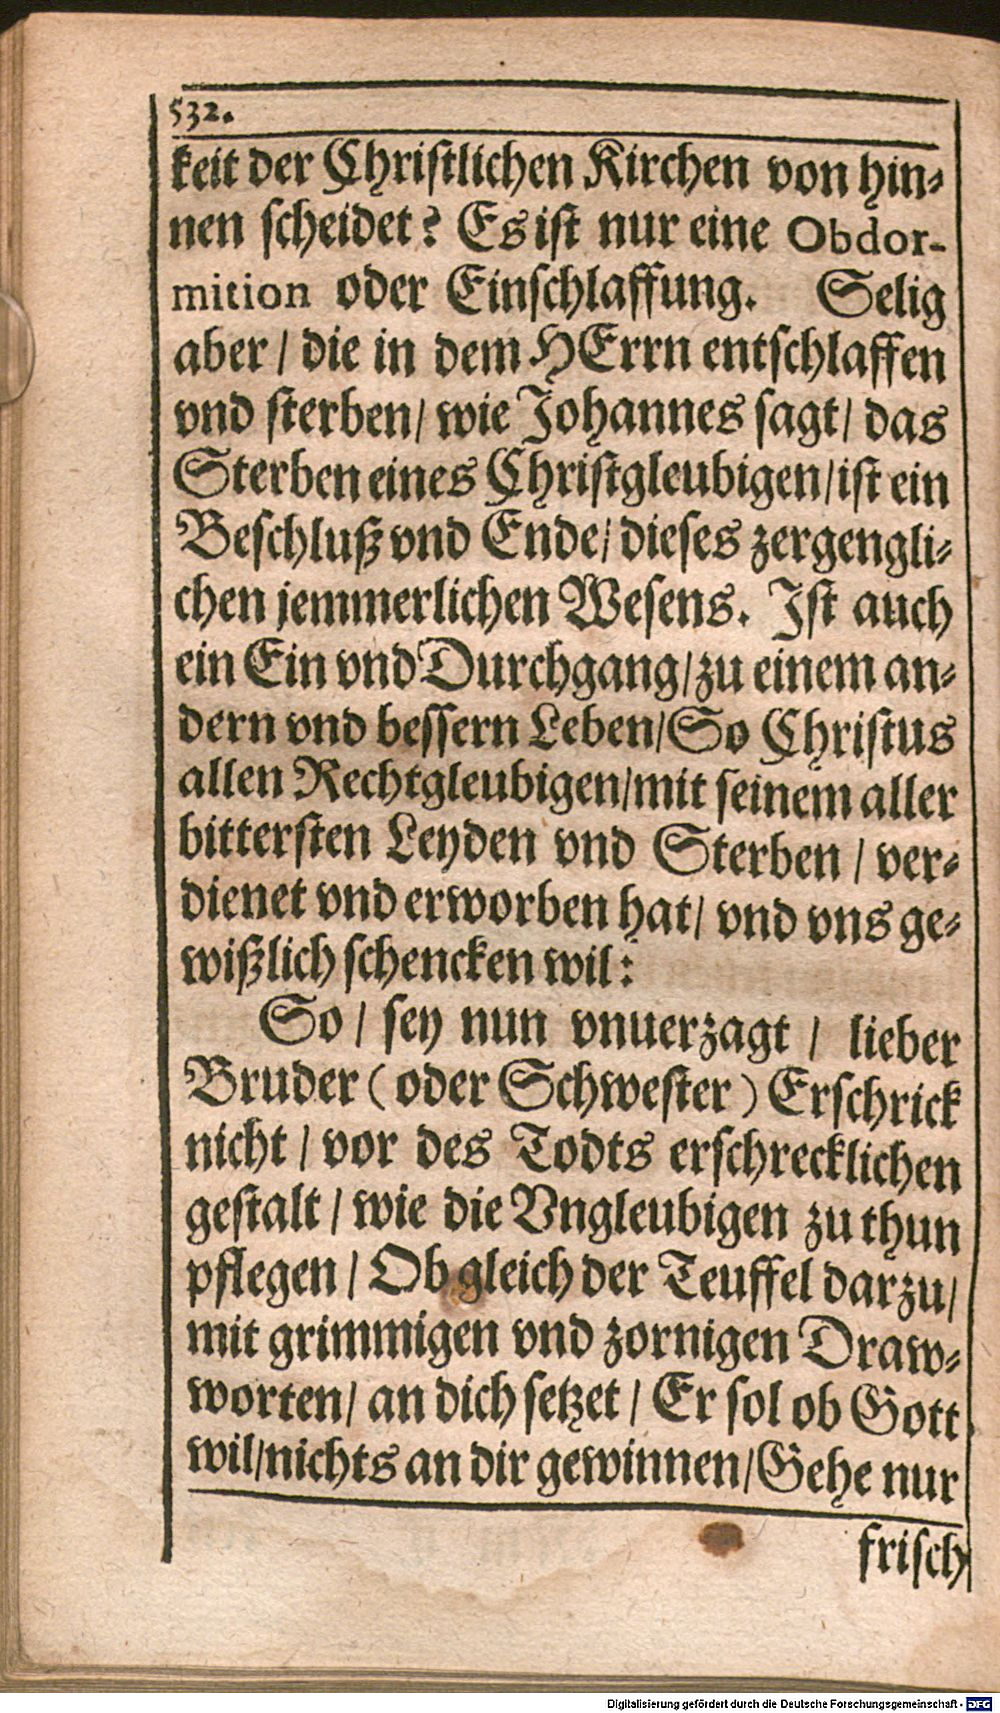 532.
keit der Christlichen Kirchen von hin⸗
nen scheidet? Es ist nur eine Obdor-
mition oder Einschlaffung. Selig
aber / die in dem HErrn entschlaffen
vnd sterben / wie Johannes sagt / das
Sterben eines Christgleubigen / ist ein
Beschluß vnd Ende / dieses zergengli⸗
chen jemmerlichen Wesens. Ist auch
ein Ein vnd Durchgang / zu einem an⸗
dern vnd bessern Leben / So Christus
allen Rechtgleubigen / mit seinem aller
bittersten Leyden vnd Sterben / ver⸗
dienet vnd erworben hat / vnd vns ge⸗
wißlich schencken wil:
So / sey nun vnuerzagt / lieber
Bruder (oder Schwester) Erschrick
nicht / vor des Todts erschrecklichen
gestalt / wie die Vngleubigen zu thun
pflegen / Ob gleich der Teuffel darzu /
mit grimmigen vnd zornigen Draw⸗
worten / an dich setzet / Er sol ob Gott
wil / nichts an dir gewinnen / Gehe nur
frisch
Digitalisierung gefördert durch die Deutsche Forschungsgemeinschaft - DFG